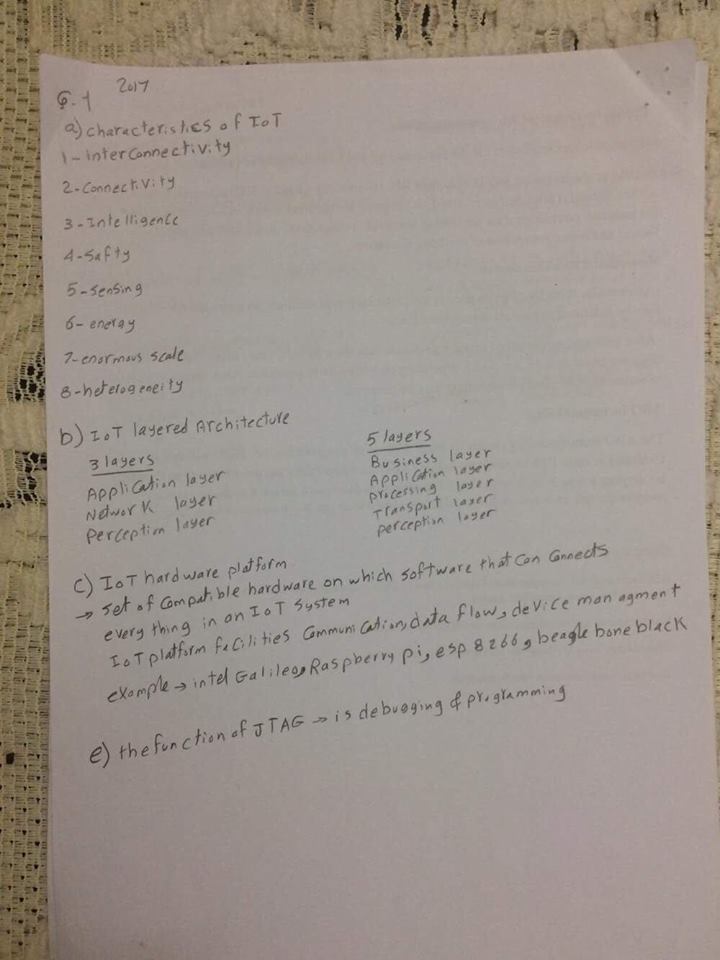 Q.1 2017
a) characteristics of IoT
1- interConnectivity
2- Connectivity
3- Intelligence
4- Safty
5- sensing
6- energy
7- enormous scale
8- heterogeneity
b) IoT layered Architecture
3 layers
Application layer
Network layer
Perception layer
5 layers
Business layer
Application layer
processing layer
Transport layer
perception layer
C) IoT hardware platform
→ set of Compatible hardware on which software that Can Connects
every thing in an IoT System
IoT platform facilities Communication, data flow, device managment
example → intel Galileo, Raspberry pi, esp 8266, beagle bone black
e) the function of JTAG → is debugging & programming